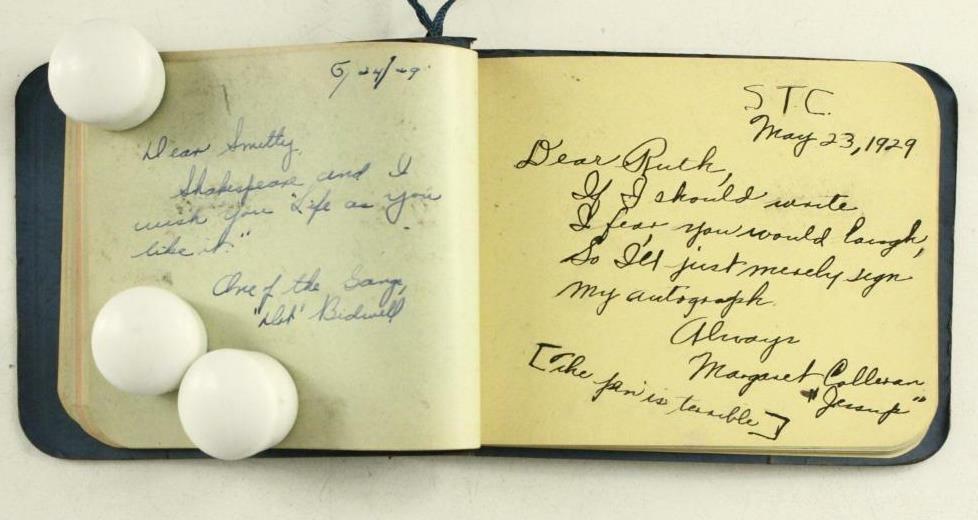 5/24/29
Dear Smitty,
Shakespeare and I
wish you "Life as you
like it."
One of the Gang,
"Dot" Bidwell
S.T.C.
May 23, 1929
Dear Ruth,
If I should write
I fear you would laugh,
So I'll just merely sign
My autograph.
Always
Margaret Colleran
"Jessup"
[The pen is terrible]